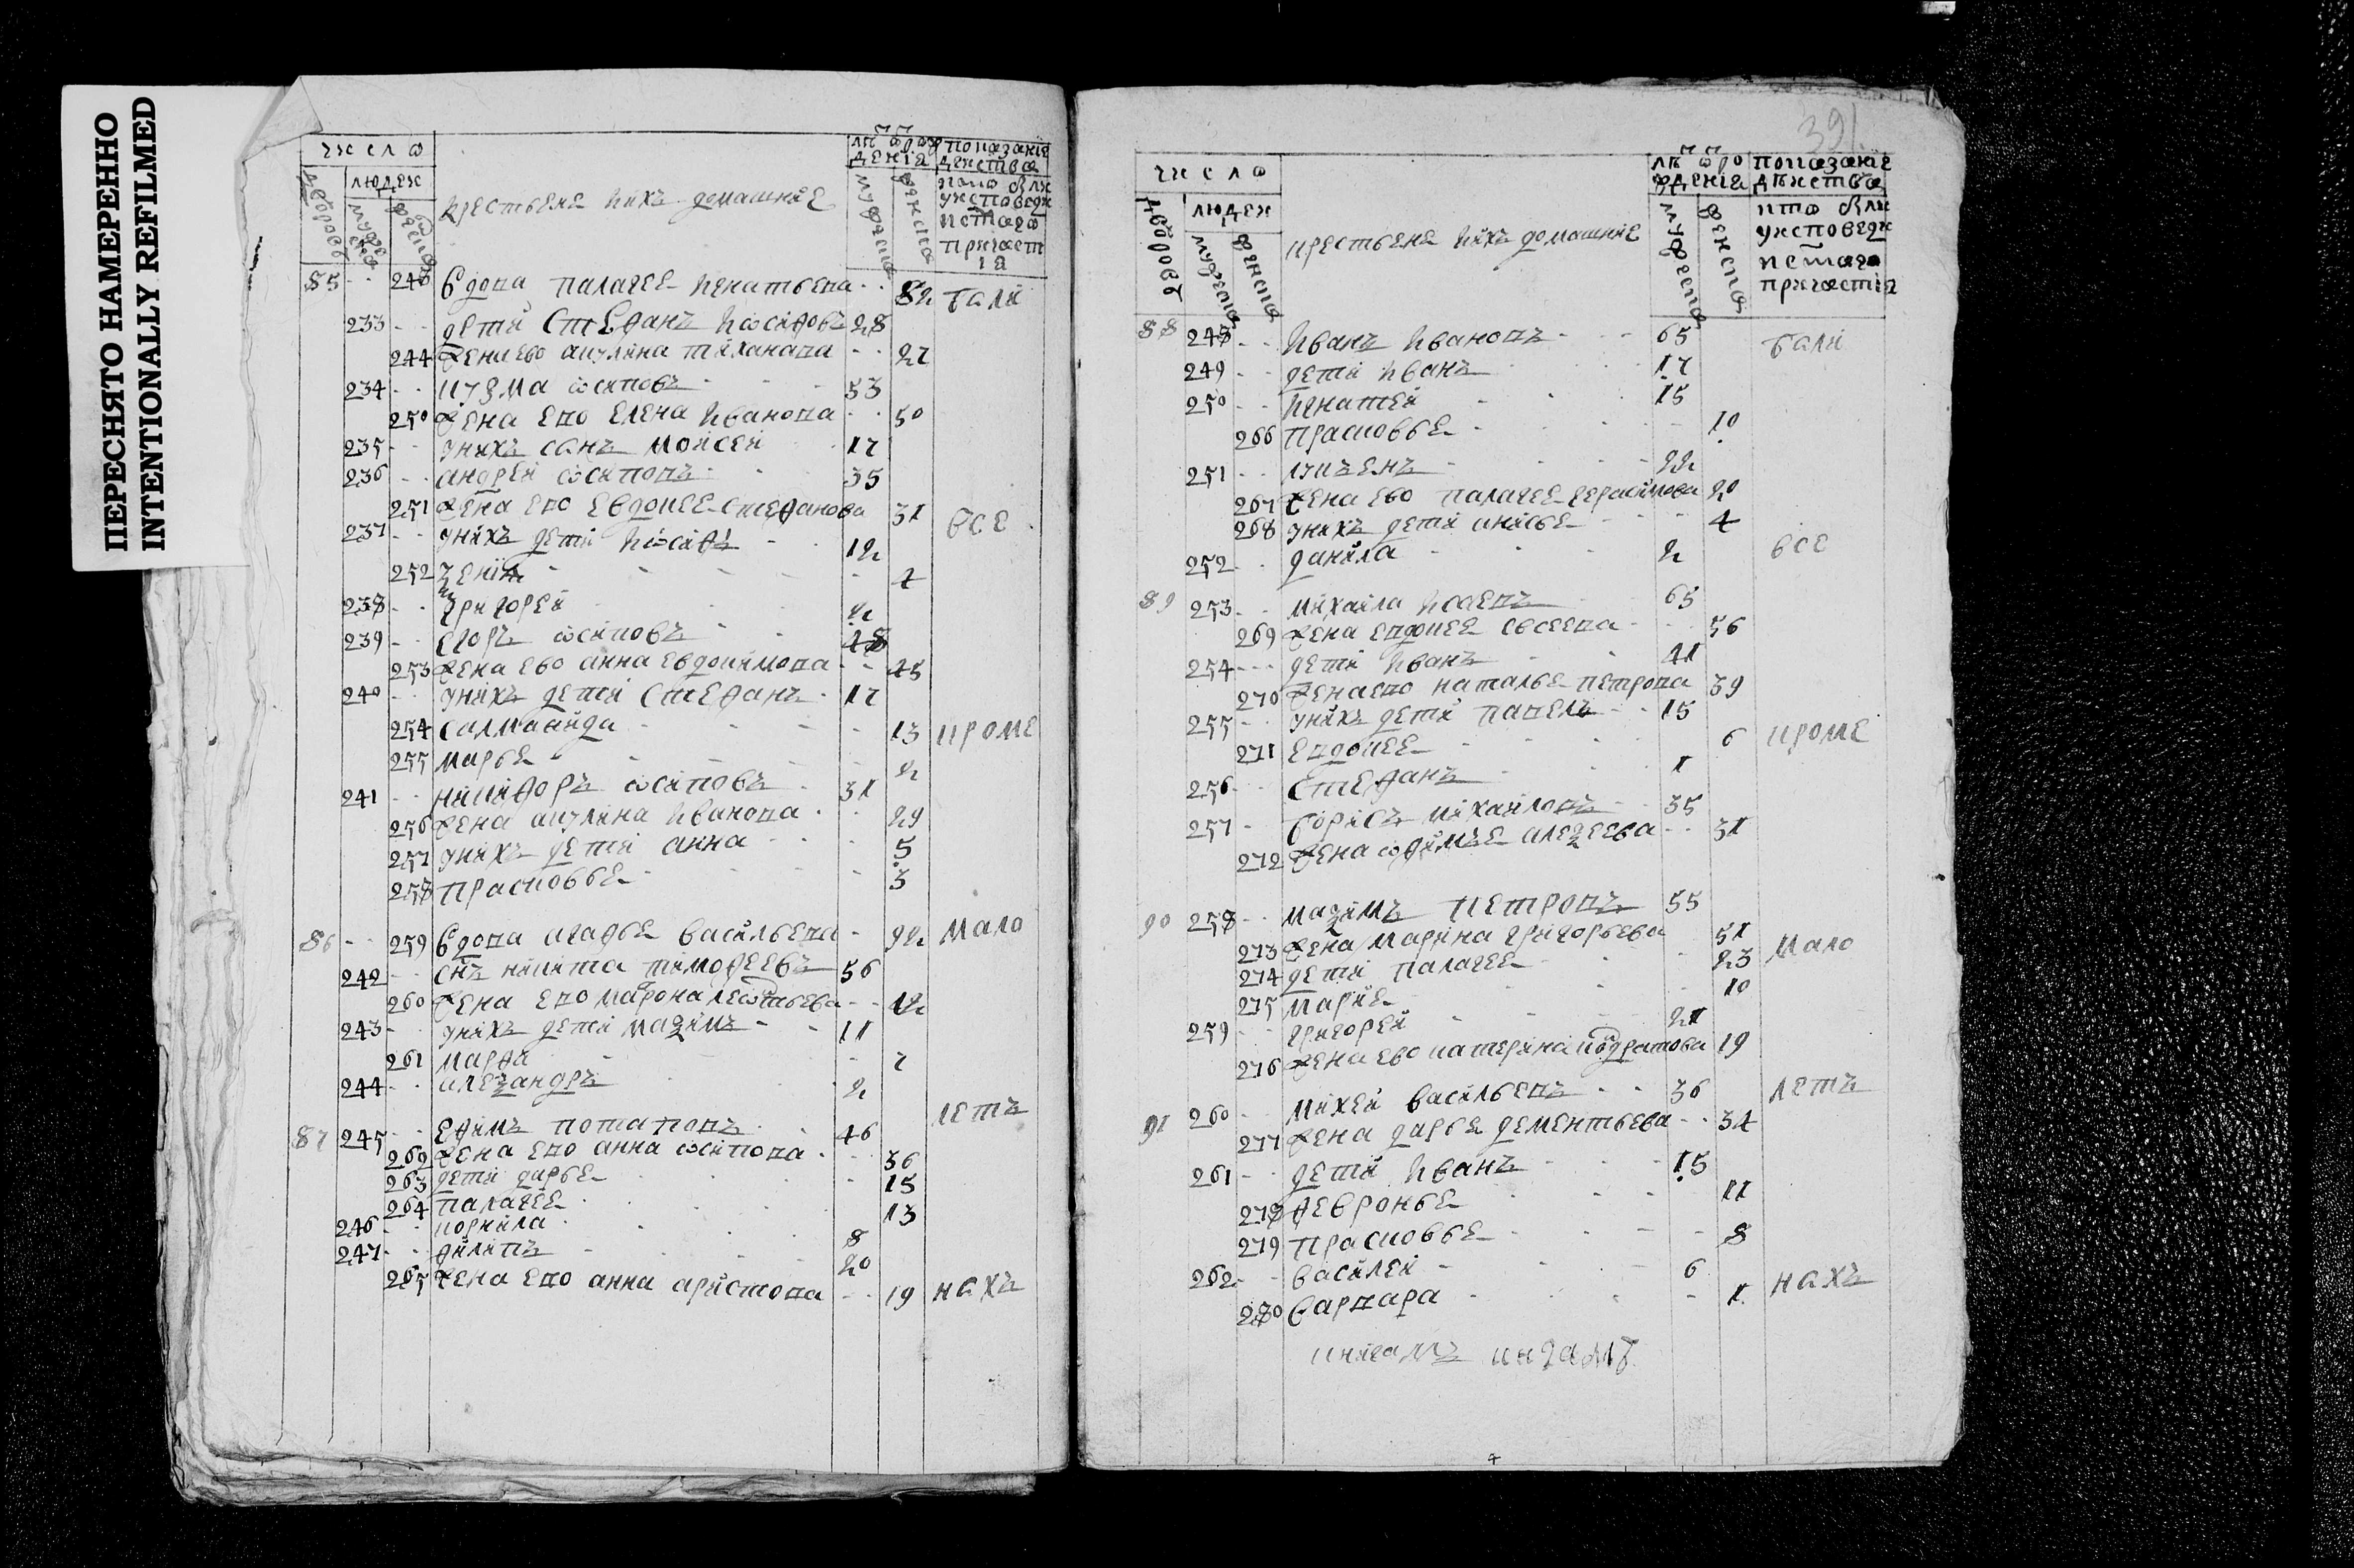 ПЕРЕСНЯТО НАМЕРЕННО
INTENTIONALLY REFILMED
число
людей
дворовъ
крестьяне ихъ домашние
85 243 вдова палагее игнатьева 82 бали
233 дети Стефанъ иосифовъ 28
244 жена ево акулина тиханава 27
234 кузма осиповъ 53
250 жена ево елена иванова 50
235 унихъ санъ моисей 17
236 андрей осиповъ 35
251 жена ево евдокее стефанова 31 все
237 унихъ дети иосифъ 12
252 4
238 григорей 2
239 егоръ осиповъ 48
253 жена ево анна евдокимова 45
240 унихъ дети Стефанъ 17
254 салманида 13 кроме
255 марье 2
241 никифоръ осиповъ 31
256 жена акулина иванова 29
257 унихъ дети анна 5
258 прасковье 3
86 259 вдова агафье васильева 92 мало
242 снъ никита тимофеевъ 56
260 жена ево 42
243 унихъ дети мазимъ 11
261 марфа 7
244 алезандръ 2
летъ
87 245 ефимъ потаповъ 46
262 жена ево анна осипова 36
263 дети дарье 15
264 палагее 13
246 корнила 8
247 филипъ 20
265 жена ево анна аристова 19 нахъ
391
число
людей
дворовъ
крестьяне ихъ домашние
показание
действа
кто бли
уисповеди
исталго
причастия
88 248 иванъ ивановъ 65 бали
249 дети иванъ 17
250 игнатей 15
266 прасковье 10
251 22
267 жена ево палагее герасимова 20
268 унихъ дети анисье 4
252 данила 2 все
89 253 михаила исаевъ 65
269 жена евдокее евсеева 56
254 дети иванъ 41
270 жена ево наталье петрова 39
255 унихъ дети павелъ 15
271 евдокее 6 кроме
256 Стефанъ 1
257 борисъ михайловъ 35
272 жена офимъе алезеева 31
90 258 мазимъ петровъ 55
273 жена марина григорьева 51
274 дети палагее 23 мало
275 марие 10
259 григорей 21
276 жена ево катерина кодратова 19
летъ
91 260 михей васильевъ 36
277 жена дарье дементьева 34
261 дети иванъ 15
278 февронье 11
279 прасковье 8
262 василей 6
280 варвара 1 нахъ